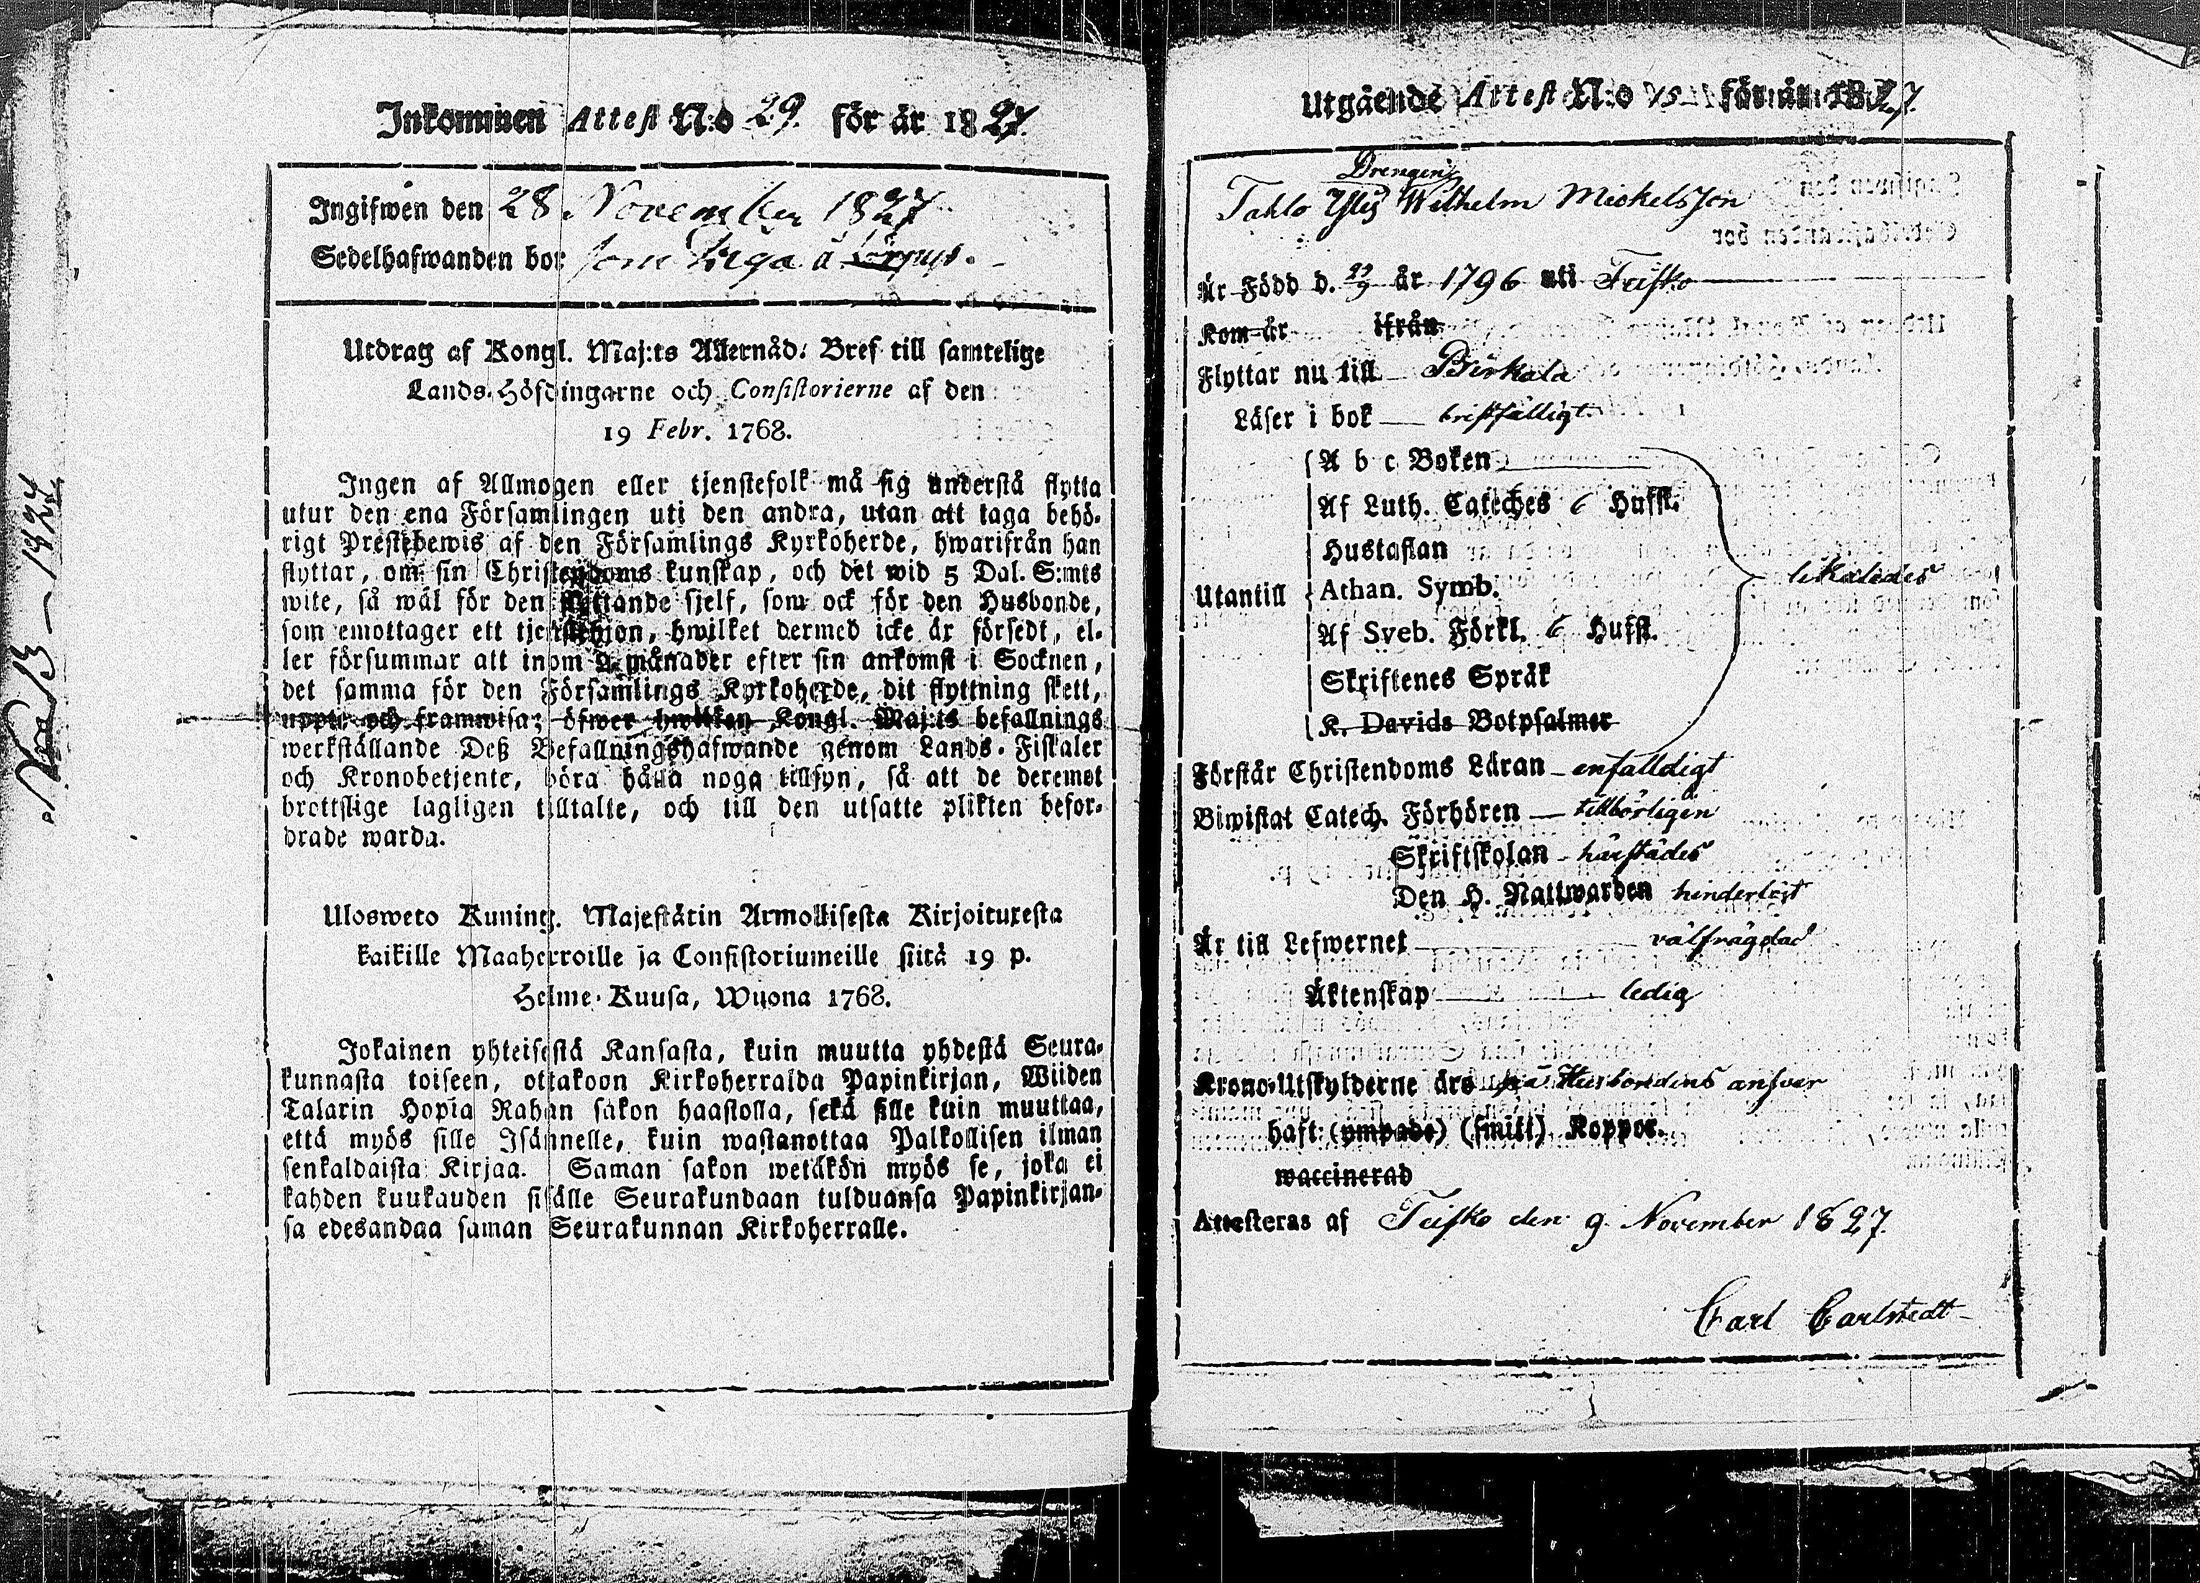 Inkommen Attest N:o 29. för år 1827.
Ingifwen den 28 November 1827
Sedelhafwanden bor som å
Utdrag af Kongl. Maj:ts Allernåd. Bref till samtelige
Lands-Höfdingarne och Consistorierne af den
19 Febr. 1768.
Ingen af Allmogen eller tjenstefolk må sig understå flytta
utur den ena Församlingen uti den andra, utan att taga behö-
rigt Prestebewis af den Församlings Kyrkoherde, hwarifrån han
flyttar, om sin Christendoms kunskap, och det wid 5 Dal. S:mts
wite, så wäl för den flyttande sjelf, som ock för den Husbonde,
som emottager ett tjenstehjon, hwilket dermed icke är försedt, el-
ler försummar att inom 2 månader efter sin ankomst i Socknen,
det samma för den Församlings Kyrkoherde, dit flyttning skett,
uppte och framwisa; öfwer hwilken Kongl. Maj:ts befallnings
werkställande Deß Befallningshafwande genom Lands-Fiskaler
och Kronobetjente, böra hålla noga tillsyn, så att de deremot
brottslige lagligen tilltalte, och till den utsatte plikten befor-
drade warda.
Ulosweto Kuning. Majestätin Armollisesta Kirjoituxesta
kaikille Maaherroille ja Consistoriumeille siitä 19 p.
Helme-Kuusa, Wuona 1768.
Jokainen yhteisestä Kansasta, kuin muutta yhdestä Seura-
kunnasta toiseen, ottakoon Kirkoherralda Papinkirjan, Wiiden
Talarin Hopia Rahan sakon haastolla, sekä sille kuin muuttaa,
että myös sille Isännelle, kuin wastanottaa Palkollisen ilman
senkaldaista Kirjaa. Saman sakon wetäkön myös se, joka ei
kahden kuukauden sisälle Seurakundaan tulduansa Papinkirjan-
sa edesandaa saman Seurakunnan Kirkoherralle.
Utgående Attest N:o för år 1827.
Drengen
Tahlo Wilhelm Mickelsson
Är Född d. 23/9 år 1796 uti Teisko
Kom år ifrån
Flyttar nu till Birkala
Läser i bok bristfälligt
A b c Boken
Af Luth. Cateches 6 Hufst.
Hustaflan
Utantill Athan. Symb. likaledes
Af Sveb. Förkl. 6 Hufst.
Skriftenes Språk
K. Davids Botpsalmer
Förstår Christendoms Läran enfalldigt
Biwistat Catech. Förhören tillbörligen
Skriftskolan härstädes
Den H. Nattwarden hinderlöst
Är till Lefwernet välfrägdad
Äktenskap ledig
Krono-Utskylderne äro på Husbondens ansvar
haft: (ympade) (smitt) Koppor.
waccinerad
Attesteras af Teisko den 9 November 1827.
Carl Carlstedt